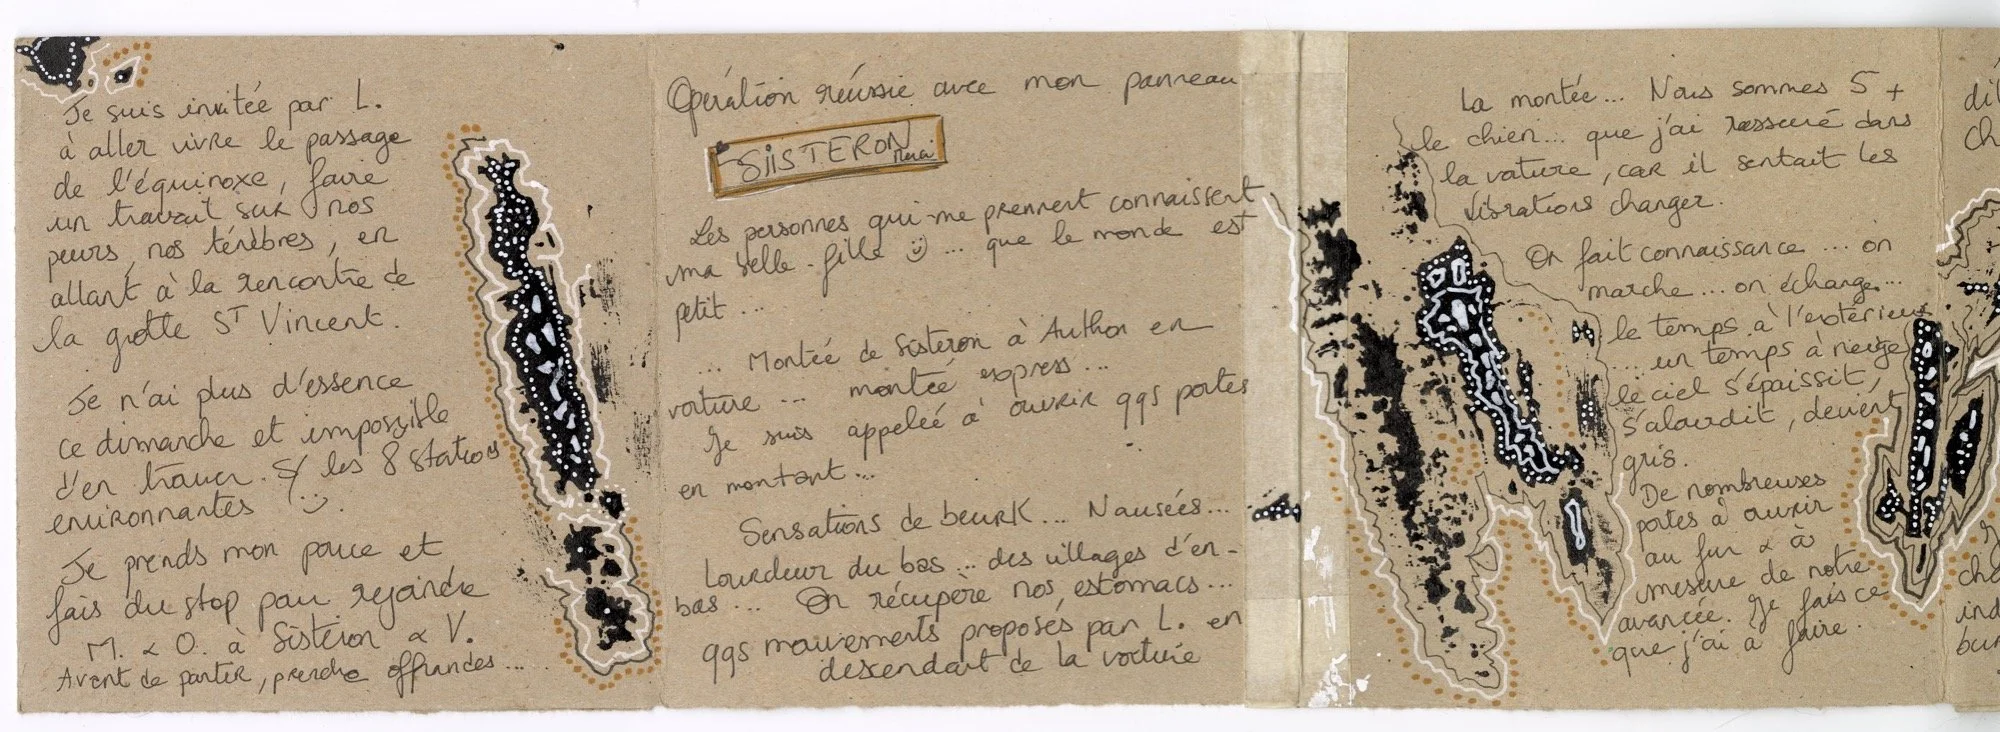 Je suis invitée par L.
à aller vivre le passage
de l'équinoxe, faire
un travail sur nos
peurs, nos ténèbres, en
allant à la rencontre de
la grotte St Vincent.
Je n'ai plus d'essence
ce dimanche et impossible
d'en trouver. S/ les 8 stations
environnantes :-).
Je prends mon pouce et
fais du stop pour rejoindre
M. & O. à Sisteron & V.
Avant de partir, prendre offrandes...
Opération réussie avec mon panneau
SIISTERON
Merci
Les personnes qui me prennent connaissent
ma belle-fille :) ... que le monde est
petit ...
... Montée de Sisteron à Authon en
voiture ... montée express ...
Je suis appelée à ouvrir qqs portes
en montant ...
Sensations de beurk ... Nausées ...
Lourdeur du bas ... des villages d'en-
bas ... On récupère nos estomacs ...
qqs mouvements proposés par L. en
descendant de la voiture
La montée ... Nous sommes 5 +
le chien ... que j'ai rassuré dans
la voiture, car il sentait les
vibrations changer.
On fait connaissance ... on
marche ... on échange ...
le temps à l'extérieur
.... un temps à neige
le ciel s'épaissit,
s'alourdit, devient
gris.
De nombreuses
portes à ouvrir
au fur & à
mesure de notre
avancée. Je fais ce
que j'ai à faire.